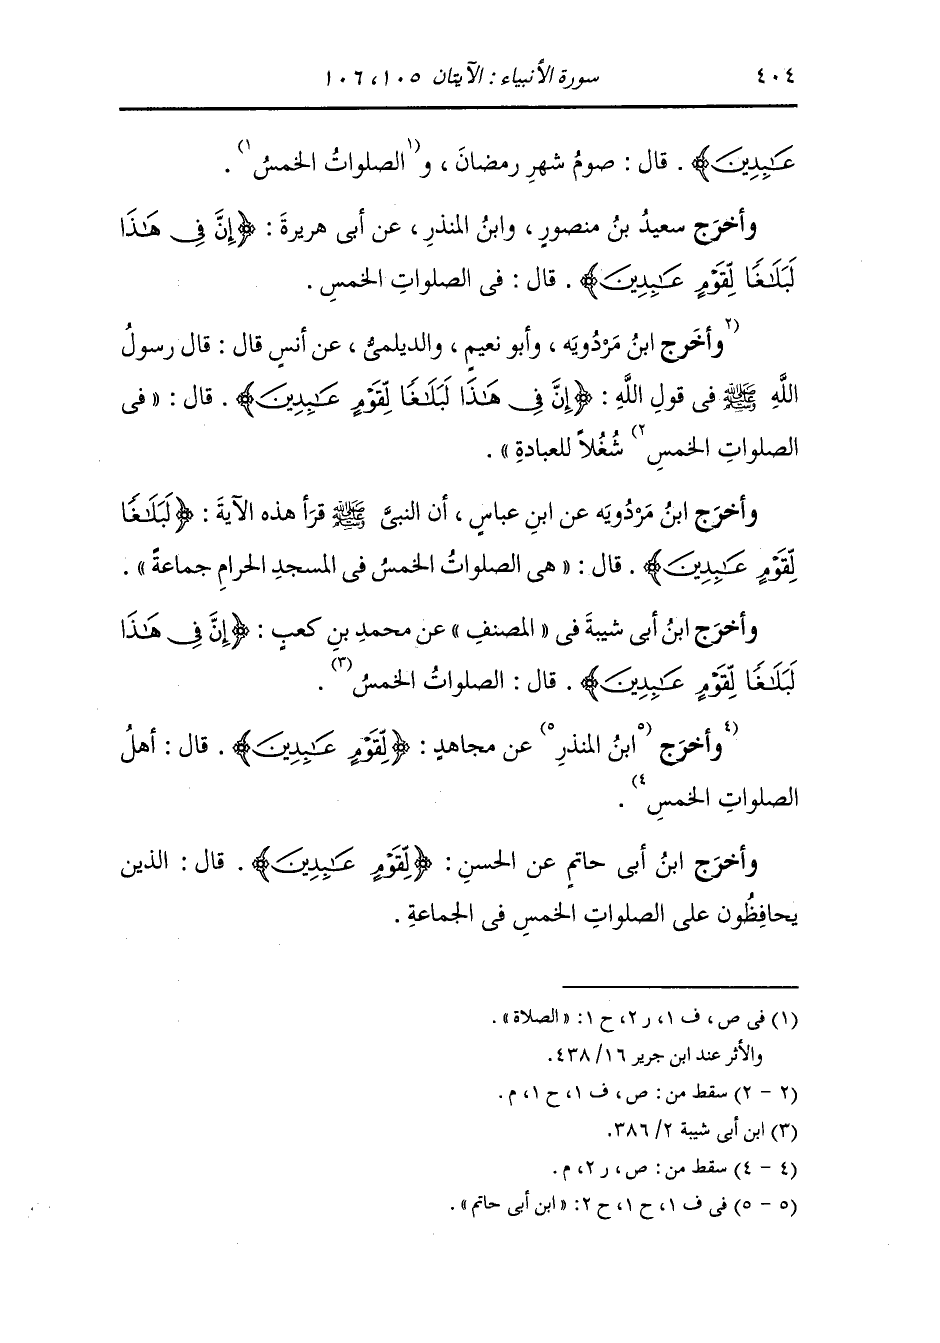 ٤٠٤ سورة الأنبياء : الآيتان ١٠٥، ١٠٦
عَـٰبِدِينَ﴾ . قال : صومُ شهرِ رمضانَ ، و(١الصلواتُ الخمسُ١) .
وأخرَج سعيدُ بنُ منصورٍ ، وابنُ المنذرِ ، عن أبى هريرةَ : ﴿إِنَّ فِى هَـٰذَا
لَبَلَـٰغًا لِّقَوْمٍ عَـٰبِدِينَ﴾ . قال : فى الصلواتِ الخمسِ .
(٢وأخرج ابنُ مَرْدُويَه ، وأبو نعيمٍ ، والديلمىُّ ، عن أنسٍ قال : قال رسولُ
اللَّهِ ﷺ فى قولِ اللَّهِ : ﴿إِنَّ فِى هَـٰذَا لَبَلَـٰغًا لِّقَوْمٍ عَـٰبِدِينَ﴾ . قال : « فى
الصلواتِ الخمسِ٢) شُغُلاً للعبادةِ » .
وأخرَج ابنُ مَرْدُويَه عن ابنِ عباسٍ ، أن النبىَّ ﷺ قرَأ هذه الآيةَ : ﴿لَبَلَـٰغًا
لِّقَوْمٍ عَـٰبِدِينَ﴾ . قال : « هى الصلواتُ الخمسُ فى المسجدِ الحرامِ جماعةً » .
وأخرَج ابنُ أبى شيبةَ فى « المصنف » عن محمدِ بنِ كعبٍ : ﴿إِنَّ فِى هَـٰذَا
لَبَلَـٰغًا لِّقَوْمٍ عَـٰبِدِينَ﴾ . قال : الصلواتُ الخمسُ(٣) .
(٤وأخرَج (٥ابنُ المنذرِ٥) عن مجاهدٍ : ﴿لِّقَوْمٍ عَـٰبِدِينَ﴾ . قال : أهلُ
الصلواتِ الخمسِ٤) .
وأخرَج ابنُ أبى حاتمٍ عن الحسنِ : ﴿لِّقَوْمٍ عَـٰبِدِينَ﴾ . قال : الذين
يحافِظُون على الصلواتِ الخمسِ فى الجماعةِ .
(١) فى ص ، ف ١، ر ٢، ح ١: « الصلاة » .
والأثر عند ابن جرير ١٦/ ٤٣٨.
(٢ - ٢) سقط من : ص ، ف ١، ح ١، م .
(٣) ابن أبى شيبة ٢/ ٣٨٦.
(٤ - ٤) سقط من : ص ، ر ٢، م .
(٥ - ٥) فى ف ١، ح ١، ح ٢: « ابن أبى حاتم » .